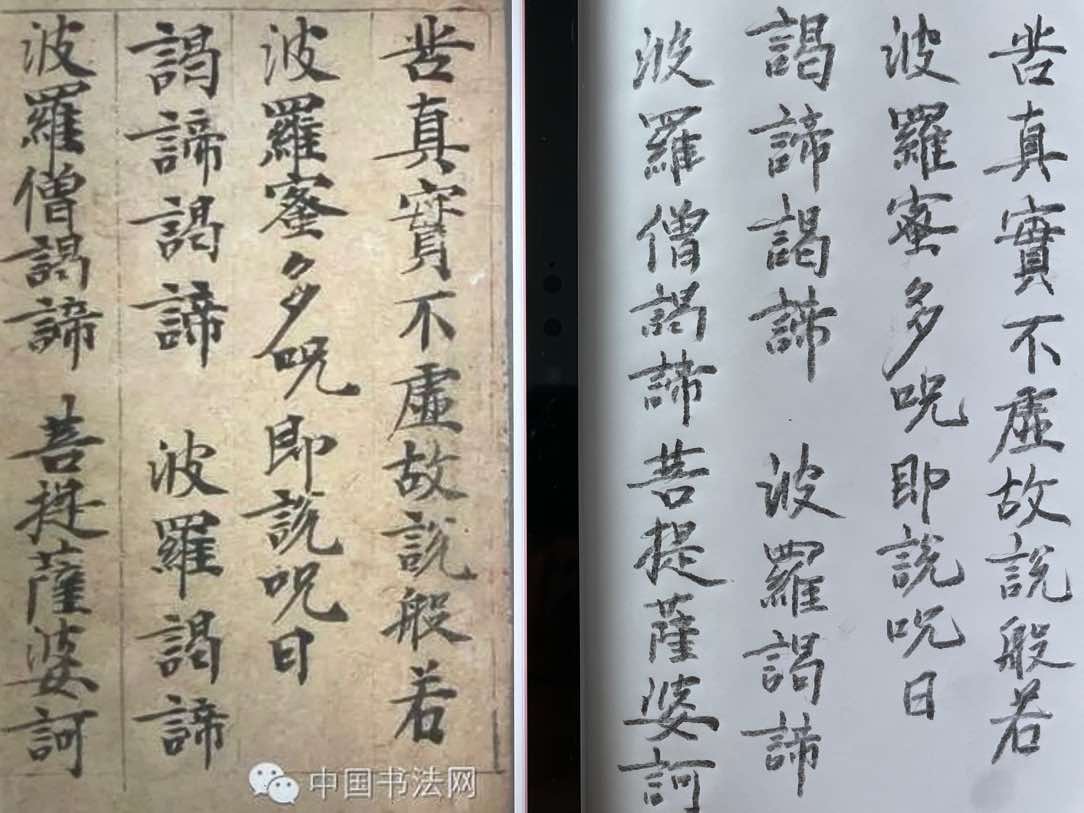 苦真實不虛故說般若
波羅蜜多呪即說呪曰
謁諦謁諦 波羅謁諦
波羅僧謁諦 菩提薩婆訶
中国书法网
苦真實不虛故說般若
波羅蜜多呪即說呪曰
謁諦謁諦 波羅謁諦
波羅僧謁諦菩提薩婆訶